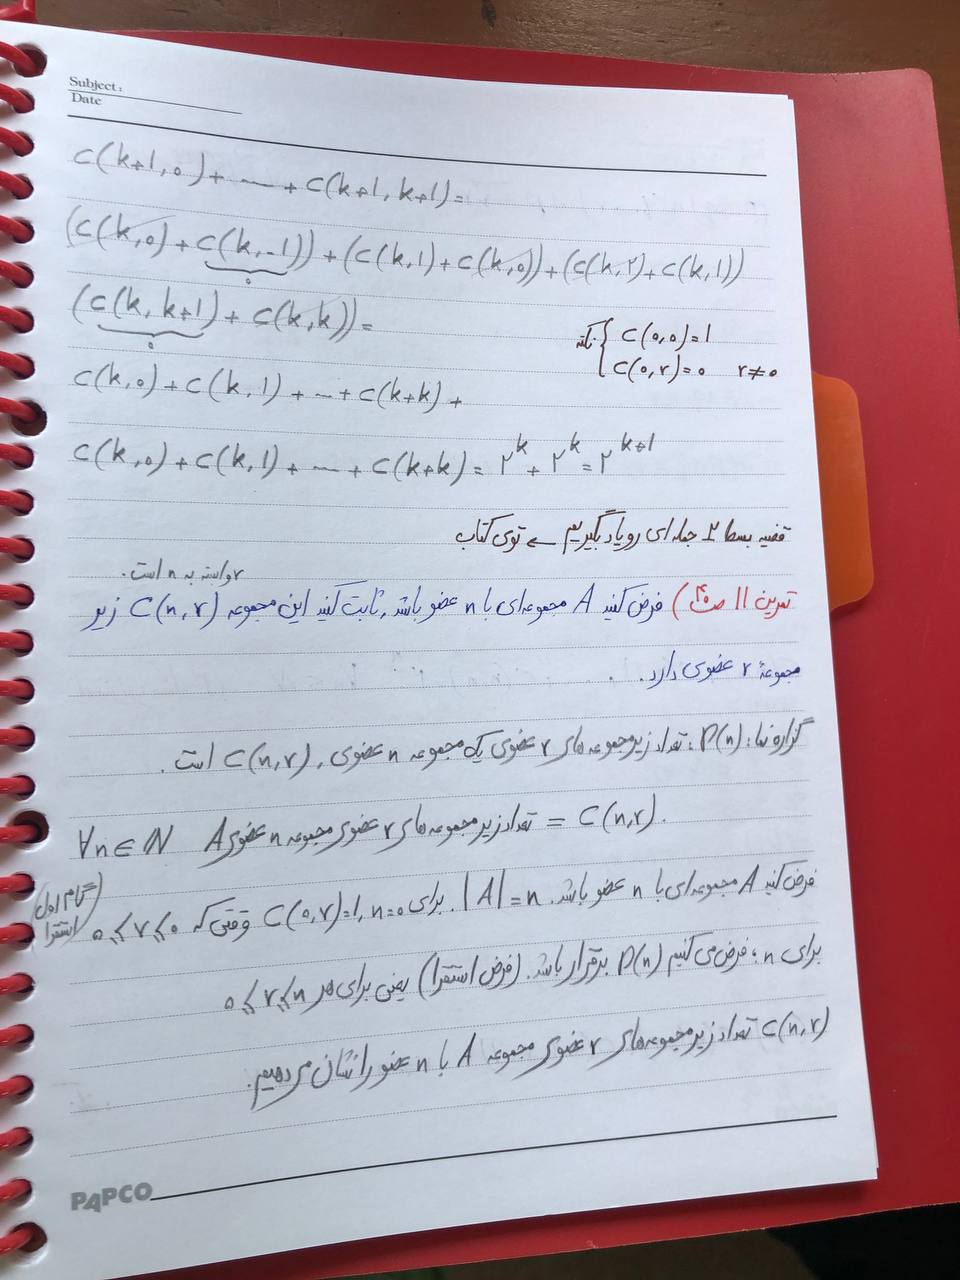 Subject:
Date
C(k+1,0)+ --- + C(k+1,k+1)=
(C(k,0)+C(k,-1)) + (C(k,1)+C(k,0))+(C(k,۲)+C(k,1))
0
(C(k,k+1)+ C(k,k))=
0
نکته { C(0,0)=1
C(0,r)=0 r≠0
C(k,0)+C(k,1) + --- + C(k+k) +
C(k,0)+C(k,1) + --- + C(k+k) = ۲^k + ۲^k = ۲^k+1
قضیه بسط ۲ جمله ای رو یاد بگیریم ← توی کتاب
r وابسته به n است.
تمرین 11 ص ۴۰) فرض کنید A مجموعه‌ای با n عضو باشد, ثابت کنید این مجموعه C(n,r) زیر
مجموعهٔ r عضوی دارد.
گزاره نما: P(n): تعداد زیرمجموعه های r عضوی یک مجموعه n عضوی, C(n,r) است.
∀n∈N تعداد زیر مجموعه های r عضوی مجموعه n عضوی A = C(n,r).
(گام اول استقرا)
فرض کنید A مجموعه ای با n عضو باشد. |A|=n. برای n=0, C(0,r)=1 وقتی که 0⩽r⩽0
برای n: فرض می کنیم P(n) برقرار باشد. (فرض استقرا) یعنی برای هر 0⩽r⩽n
C(n,r) تعداد زیرمجموعه های r عضوی مجموعه A با n عضو را نشان می دهیم.
PAPCO